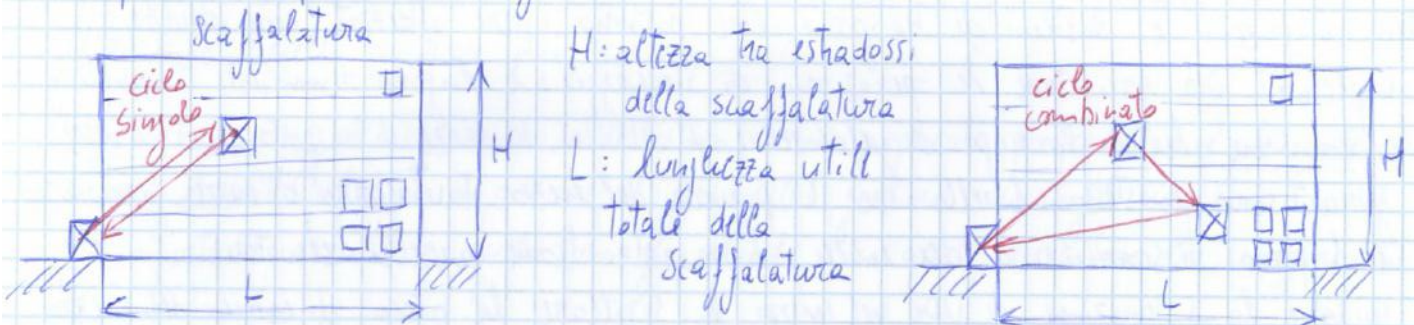 scaffalatura
ciclo
singolo
H
L
H: altezza tra estradossi
della scaffalatura
L: lunghezza utile
totale della
scaffalatura
ciclo
combinato
H
L